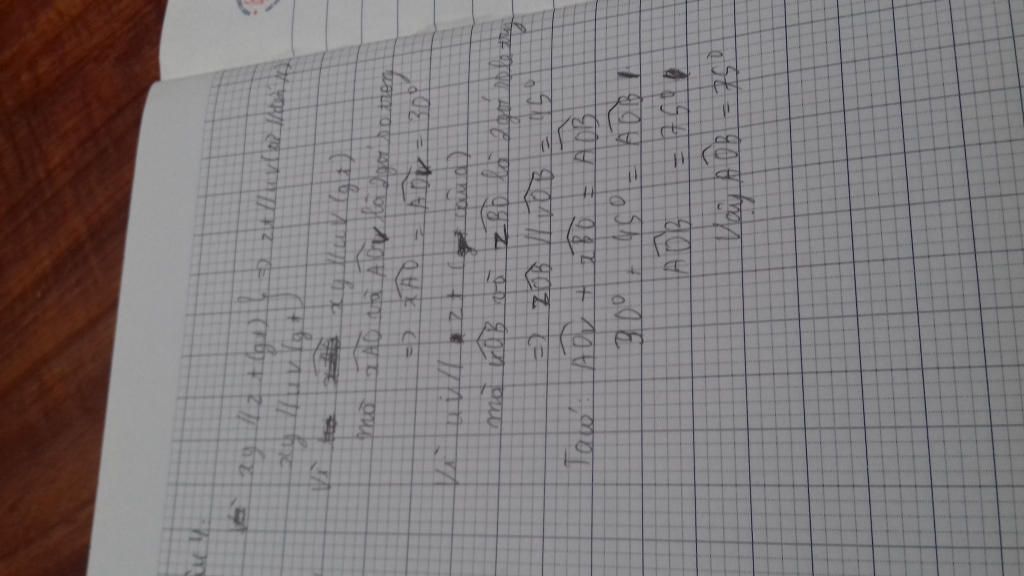 Câu 4.
xy // zt (gt) } => zt // uv (
xy // uv (gt)
Vì xy // uv (gt)
mà xAO và AOv là 2 góc so le trong
=> xAO = AOv = 30°
Vì uv // zt (câu a)
mà vOB và zBO là 2 góc so le trong
=> zOB // vOB = 45°
Ta có: AOv + zBO = AOB
30° + 45° = AOB
AOB = 75°
Vậy AOB = 75°